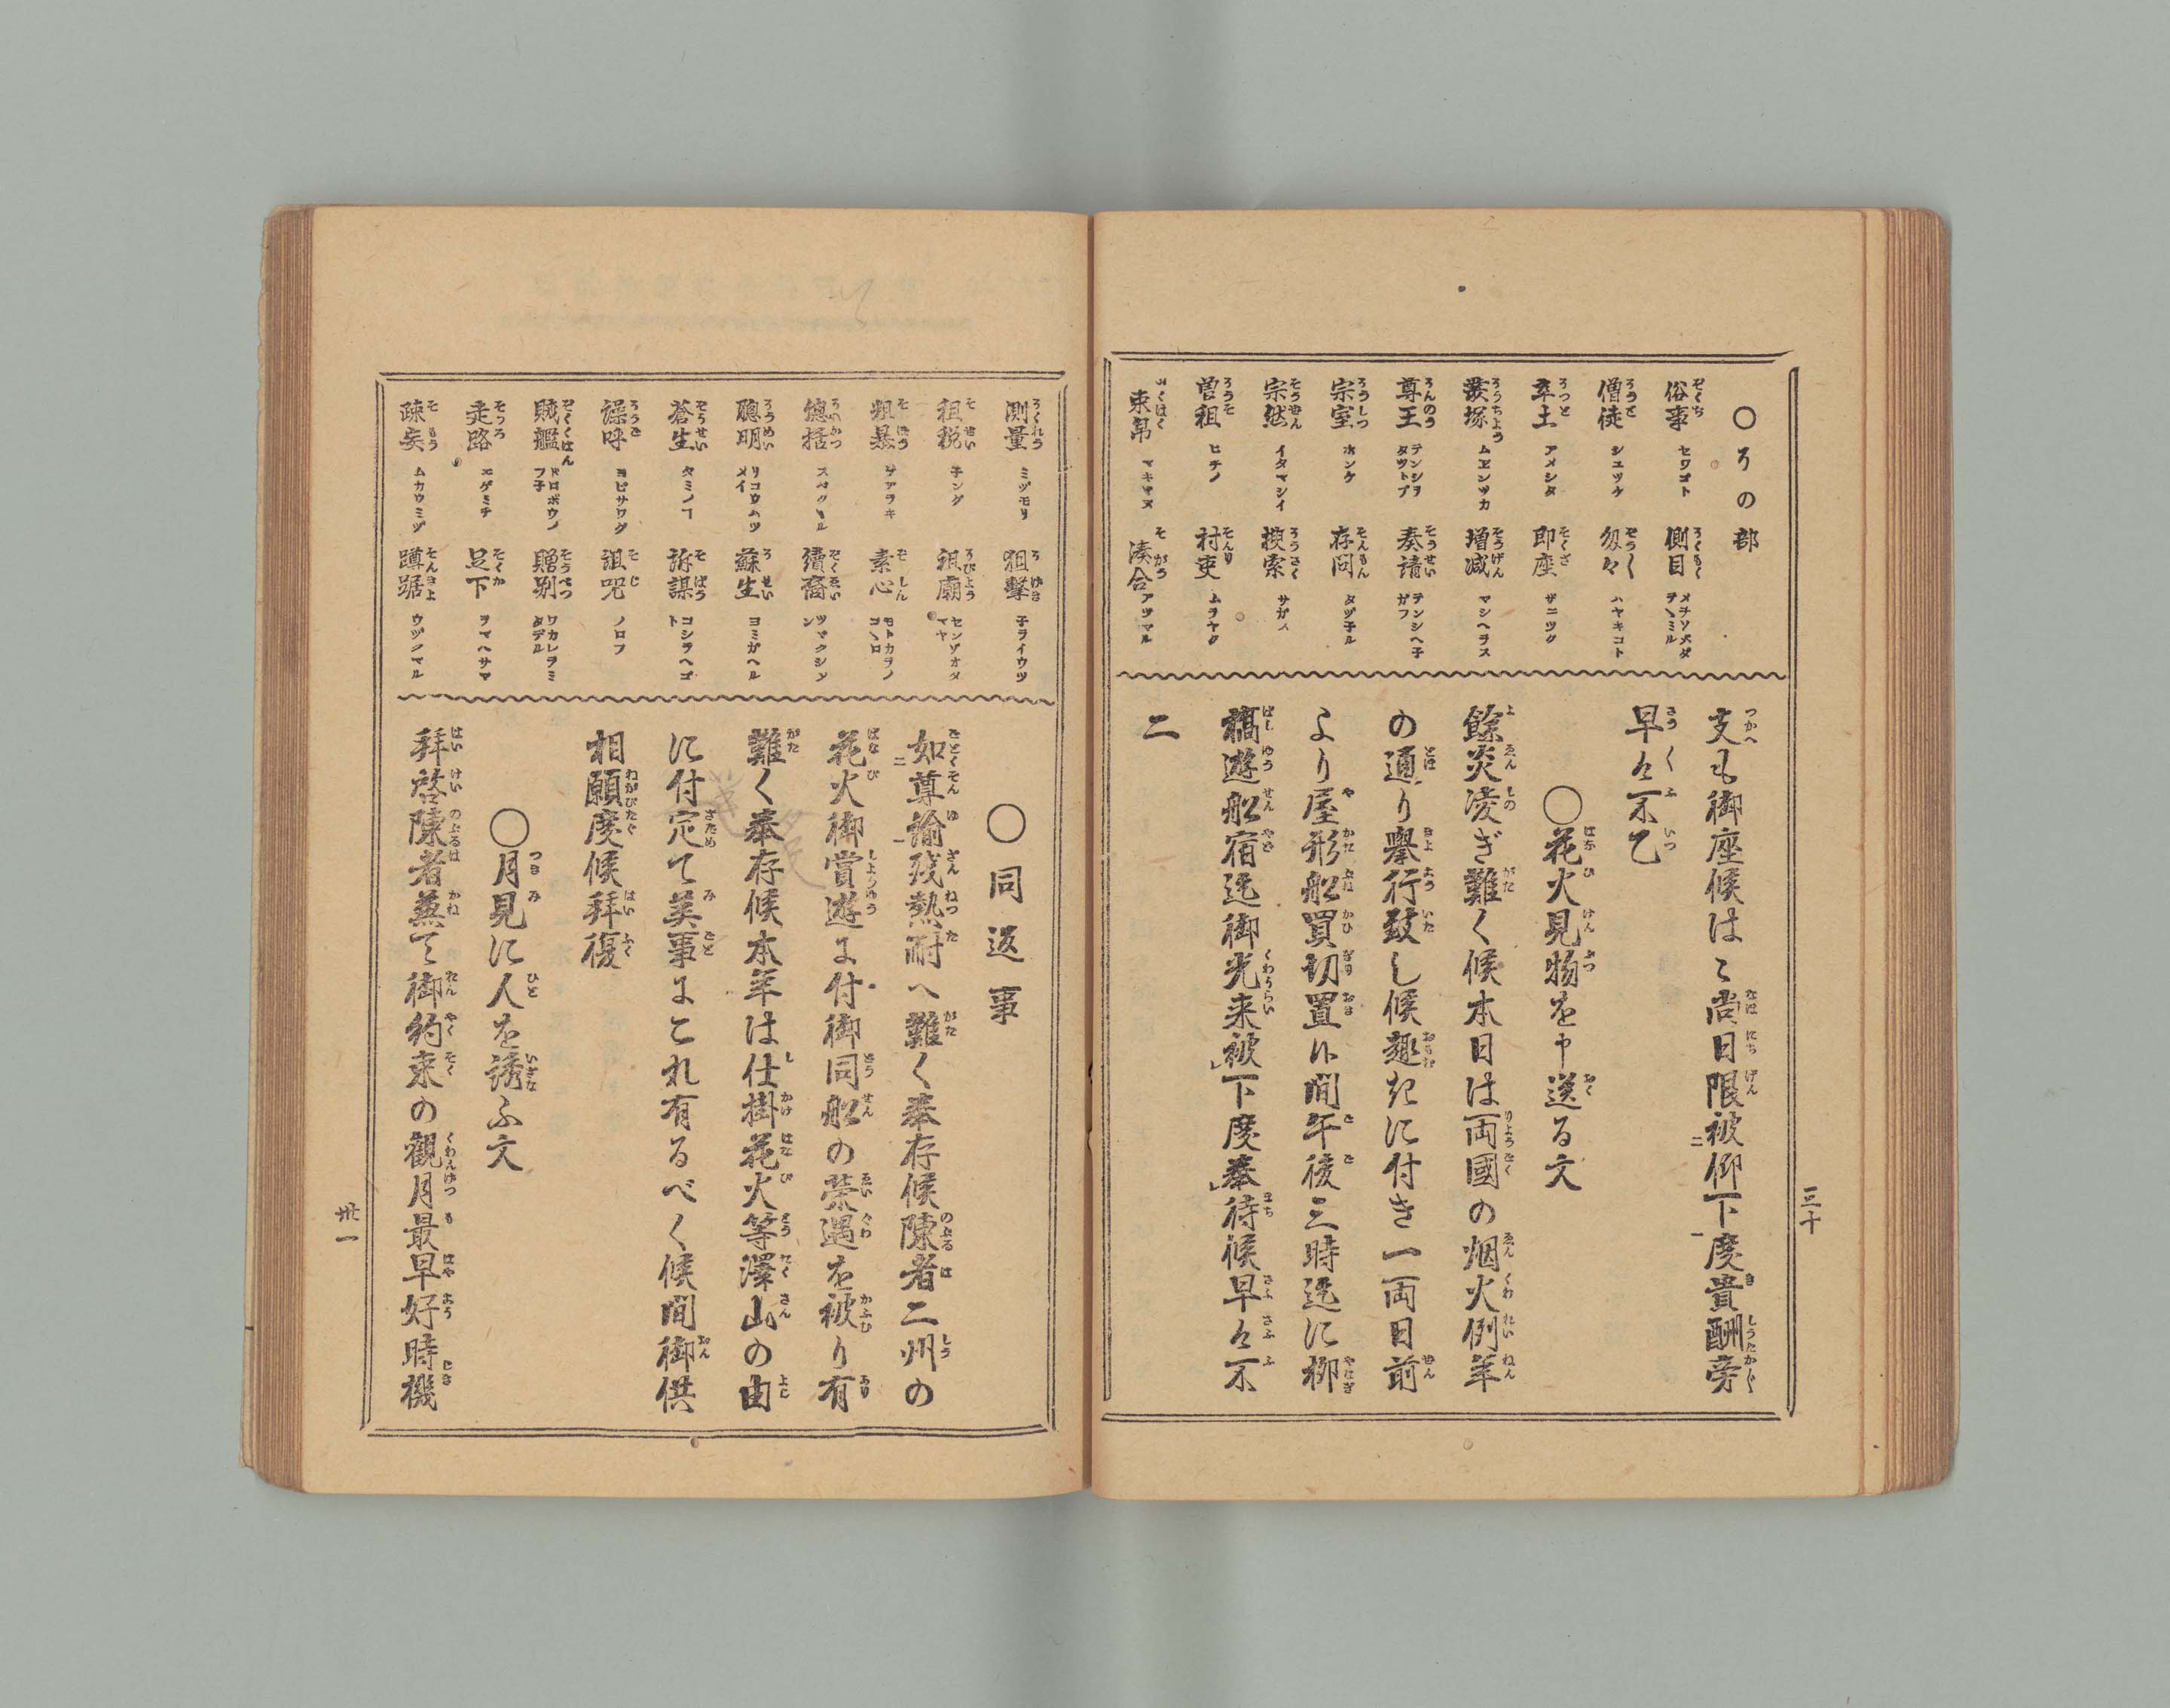 ○その部
俗事 セワゴト 側目 メヲソバダテヽミル
僧徒 シユツケ 匆々 ハヤキコト
率土 アメシタ 即座 ザニツク
叢塚 ムエンヅカ 増減 マシヘラス
尊王 テンシヲタツトブ 奏請 テンシヘ子ガフ
宗室 ホンケ 存問 タヅ子ル
宗然 イタマシイ 捜索 サガス
曽祖 ヒヂノ 村吏 ムラヤク
束帛 マキギヌ 湊合 アツマル
支も御座候はゞ尚日限被仰下度貴酬旁
早々不乙
○花火見物を申送る文
餘炎凌ぎ難く候本日は両國の烟火例年
の通り擧行致し候趣きに付き一両日前
より屋形船買切置候間午後三時迄に柳
橋遊船宿迄御光来被下度奉待候早々不
二
三十
測量 ミヅモリ 狙撃 子ライウツ
租税 子ング 祖廟 センゾオタマヤ
粗暴 サアラキ 素心 モトカラノコヽロ
總括 スベクヽル 續裔
聰明 リコウハツメイ 蘇生 ヨミガヘル
蒼生 タミ 訴謀 コシラヘゴト
譟呼 ヨビサワグ 詛咒 ノロフ
賊艦 ドロボウノフ子 贈別 ワカレヲミタデル
走路 ニゲミチ 足下 ヲマヘサマ
疎妄 ムカウミヅ 蹲踞 ウヅクマル
○同返事
如尊諭残熱耐へ難く奉存候陳者二州の
花火御賞遊に付御同船の栄遇を被り有
難く奉存候本年は仕掛花火等澤山の由
に付定て美事にこれ有るべく候間御供
相願度候拝復
○月見に人を誘ふ文
拝啓陳者兼て御約束の観月最早好時機
卅一